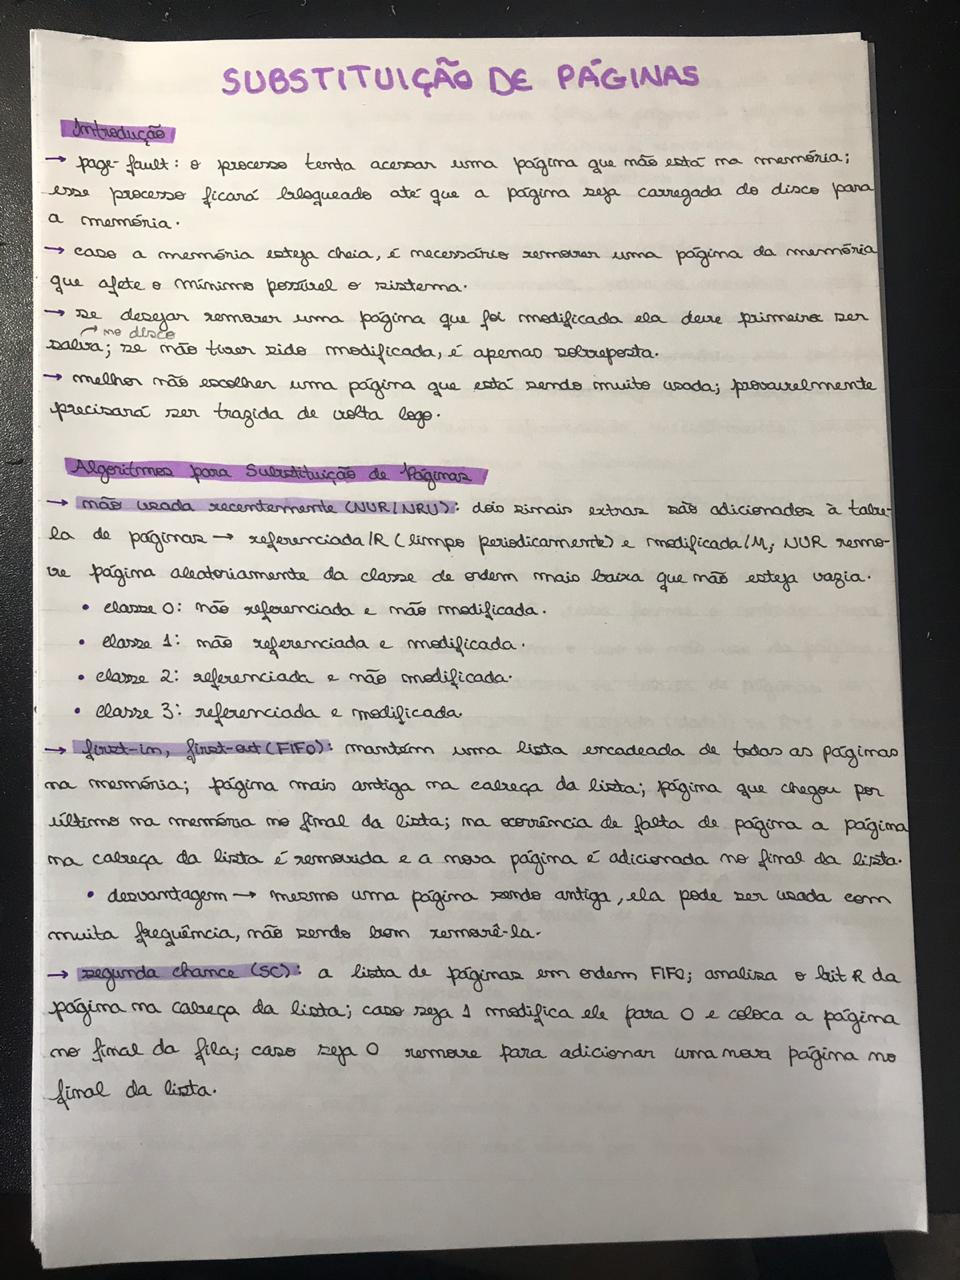 SUBSTITUIÇÃO DE PÁGINAS
Introdução
→ page-fault: o processo tenta acessar uma página que não está na memória;
esse processo ficará bloqueado até que a página seja carregada do disco para
a memória.
→ caso a memória esteja cheia, é necessário remover uma página da memória
que afete o mínimo possível o sistema.
→ se desejar remover uma página que foi modificada ela deve primeiro ser
no disco
salva; se não tiver sido modificada, é apenas sobreposta.
→ melhor não escolher uma página que está sendo muito usada; provavelmente
precisará ser trazida de volta logo.
Algoritmos para Substituição de Páginas
→ não usada recentemente (NUR/NRU): dois sinais extras são adicionados à tabe-
la de páginas → referenciada/R (limpo periodicamente) e modificada/M; NUR remo-
ve página aleatoriamente da classe de ordem mais baixa que não esteja vazia.
• classe 0: não referenciada e não modificada.
• classe 1: não referenciada e modificada.
• classe 2: referenciada e não modificada.
• classe 3: referenciada e modificada.
→ first-in, first-out (FIFO): mantém uma lista encadeada de todas as páginas
na memória; página mais antiga na cabeça da lista; página que chegou por
último na memória no final da lista; na ocorrência de falta de página a página
na cabeça da lista é removida e a nova página é adicionada no final da lista.
• desvantagem → mesmo uma página sendo antiga, ela pode ser usada com
muita frequência, não sendo bom removê-la.
→ segunda chance (SC): a lista de páginas em ordem FIFO; analisa o bit R da
página na cabeça da lista; caso seja 1 modifica ele para 0 e coloca a página
no final da fila; caso seja 0 remove para adicionar uma nova página no
final da lista.